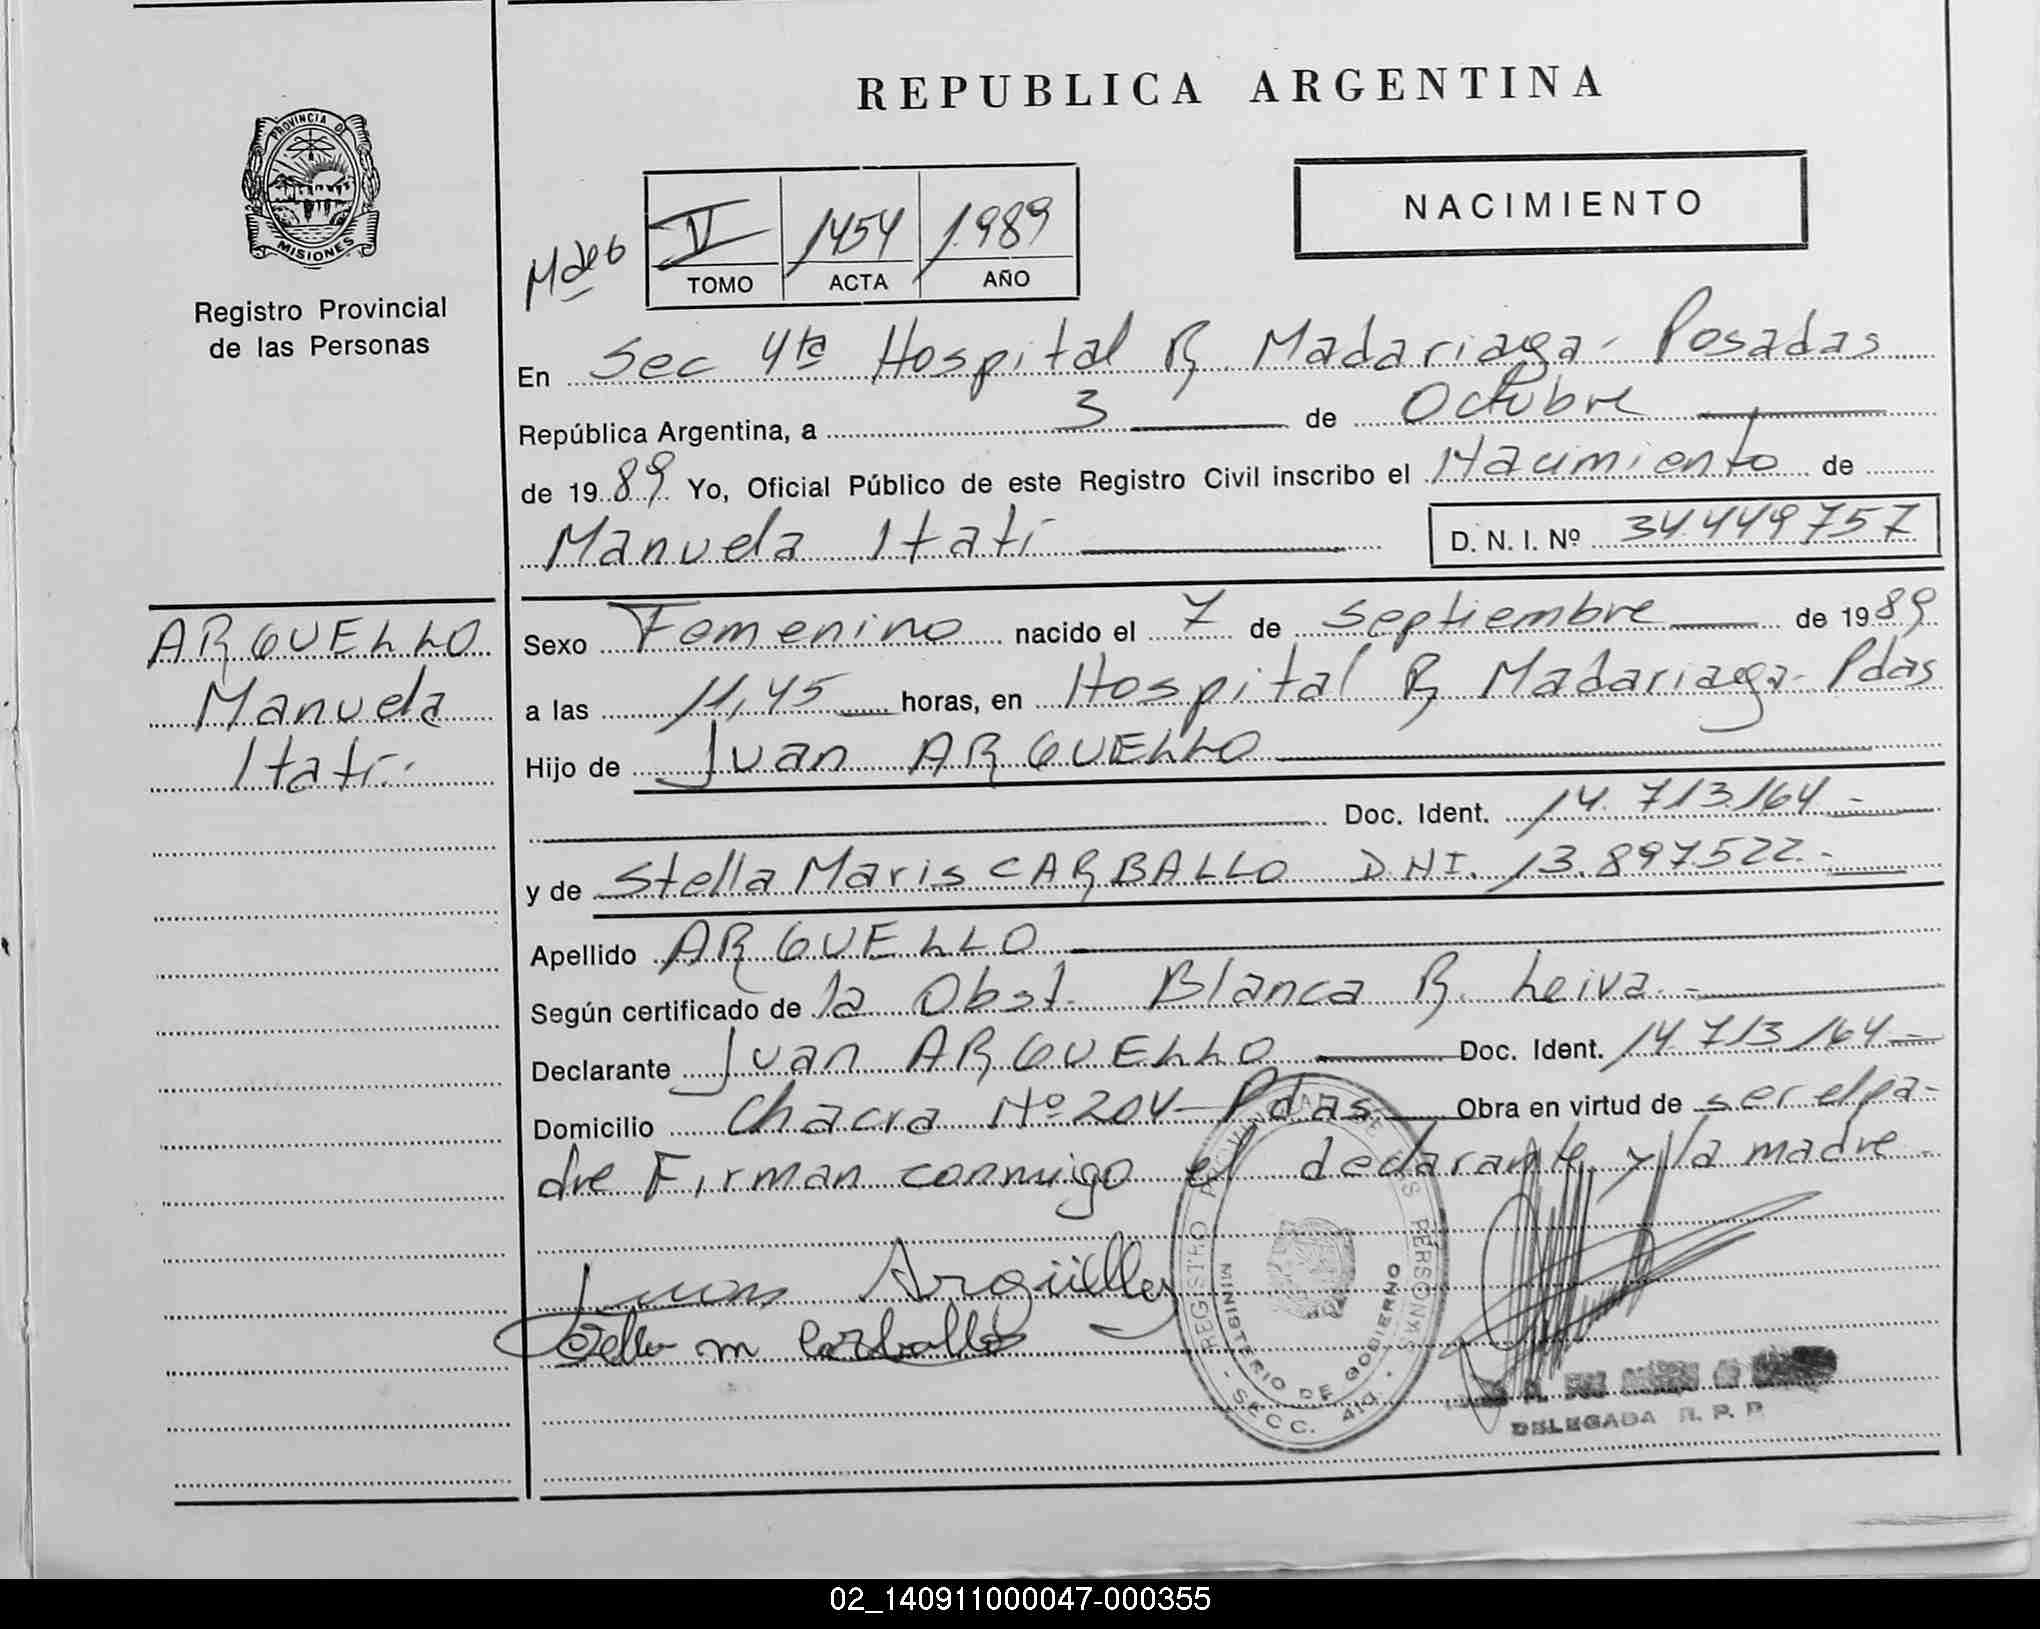 REPUBLICA ARGENTINA
PROVINCIA DE
MISIONES
Registro Provincial
de las Personas
NACIMIENTO
V 1454 1989
TOMO ACTA AÑO
En Sec 4ta Hospital R. Madariaga - Posadas
República Argentina, a 3 de Octubre
de 1989. Yo, Oficial Público de este Registro Civil inscribo el Nacimiento de
Manuela Itatí D. N. I. Nº 34449757
ARGUELLO
Manuela
Itatí.
Sexo Femenino nacido el 7 de Septiembre de 1989
a las 11,45 horas, en Hospital R Madariaga - Pdas
Hijo de Juan ARGUELLO
Doc. Ident. 14.713.164 -
y de Stella Maris CARBALLO DNI. 13.897.522.-
Apellido ARGUELLO
Según certificado de la Obst. Blanca R. Leiva.-
Declarante Juan ARGUELLO Doc. Ident. 14.713.164 -
Domicilio Chacra Nº 204 - Pdas Obra en virtud de ser el pa-
dre Firman conmigo el declarante y la madre -
Juan Argüello
Stella m Carballo
REGISTRO PROVINCIAL DE LAS PERSONAS
MINISTERIO DE GOBIERNO
- SECC. 4ta. -
DELEGADA R. P. P.
02_140911000047-000355